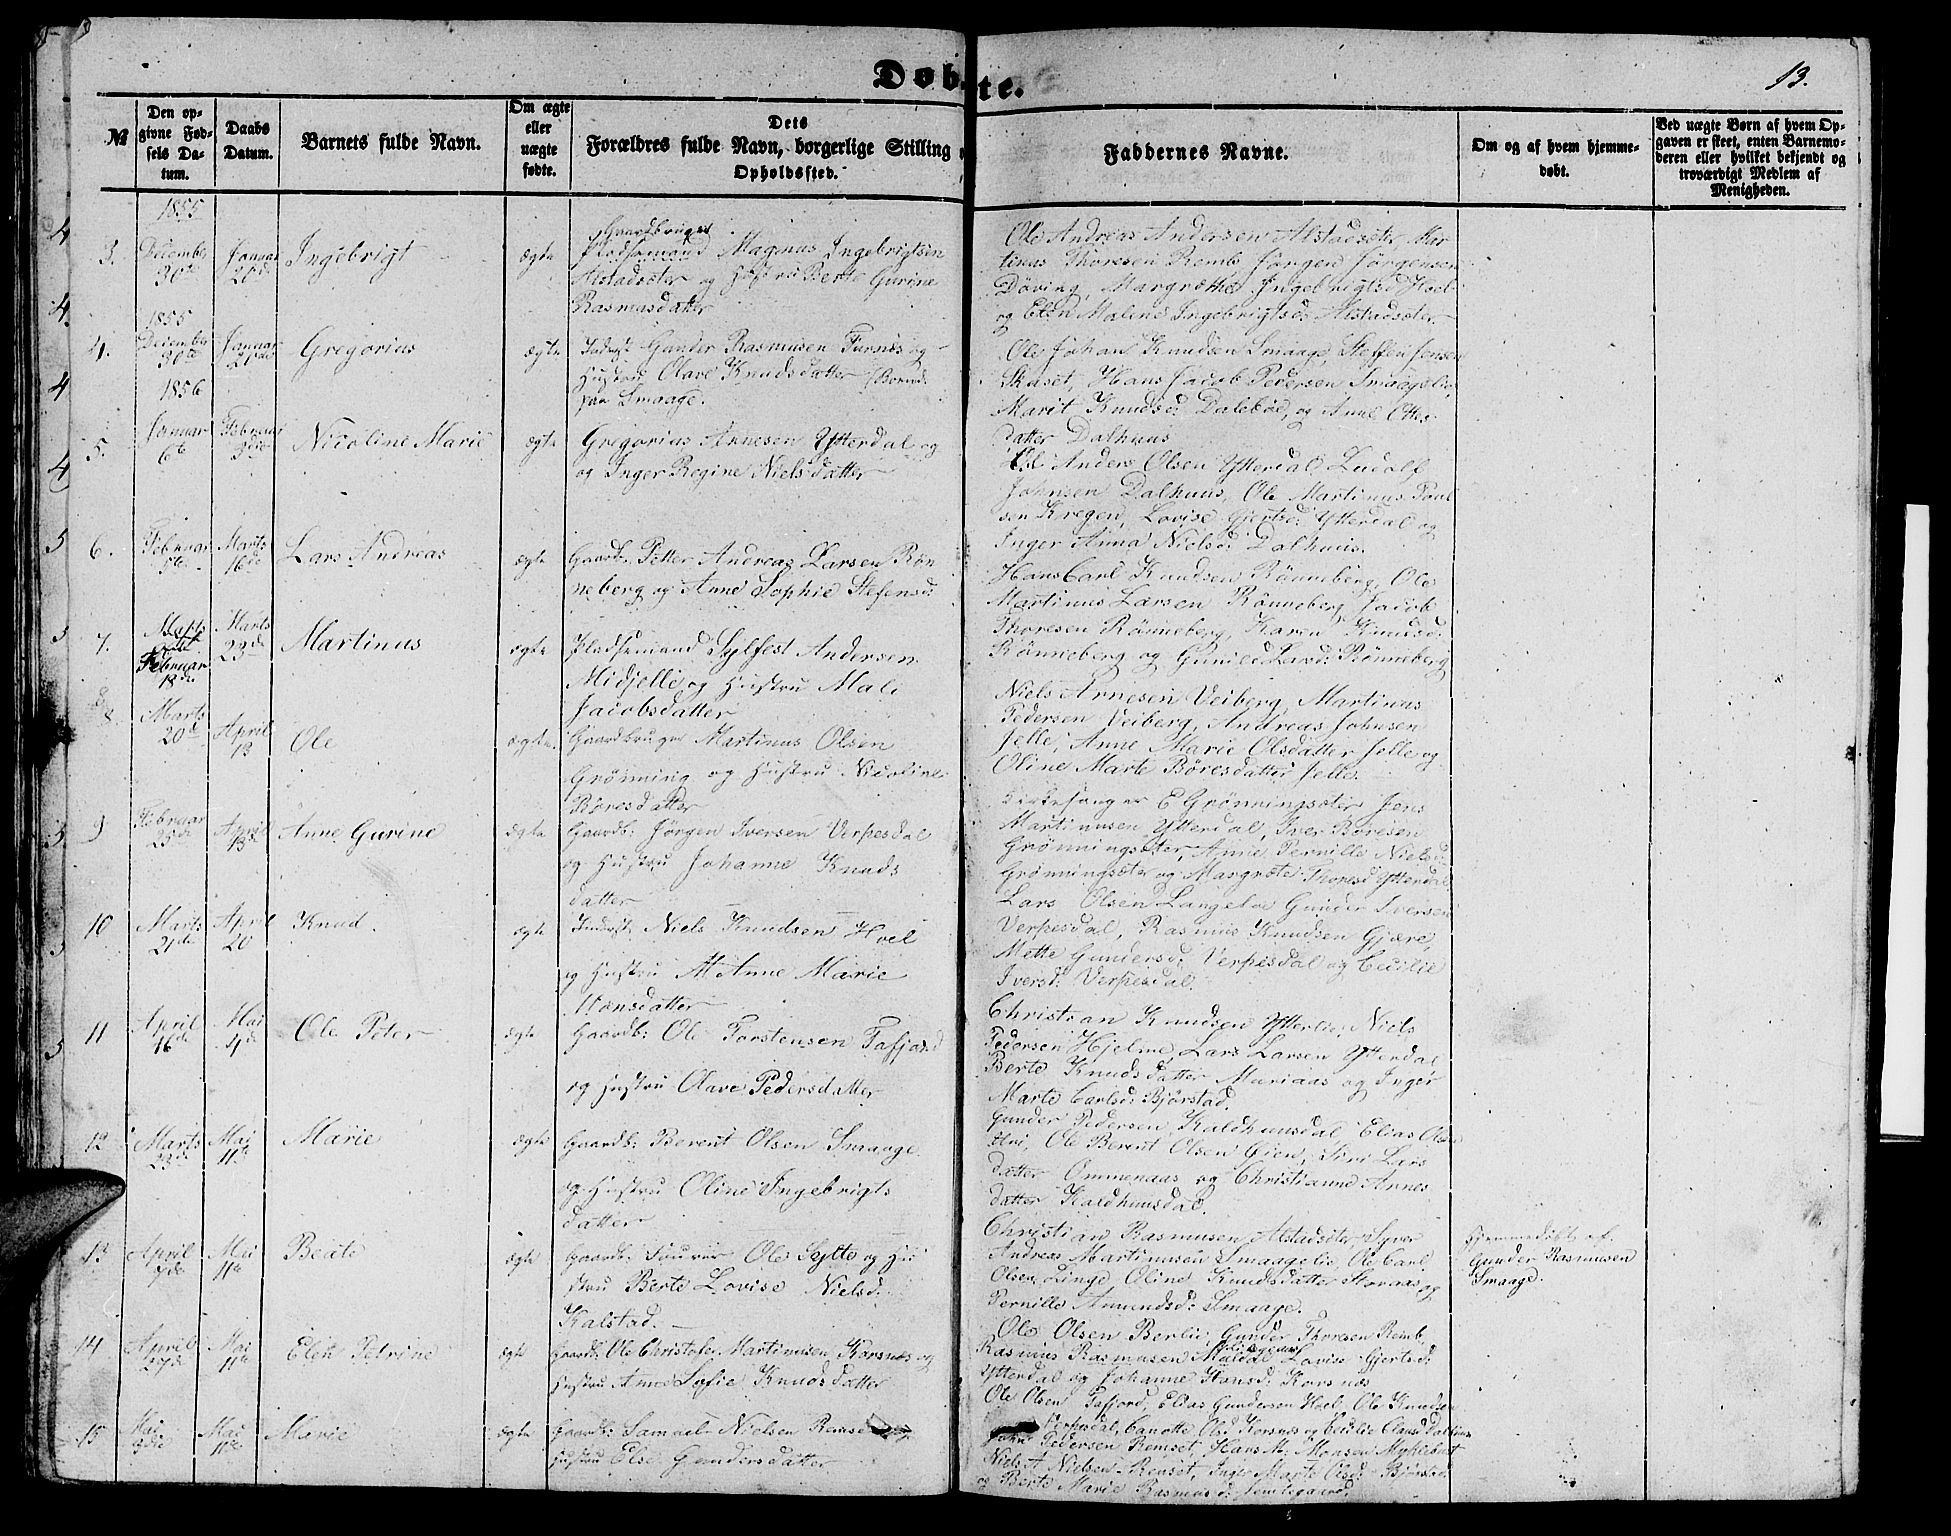 Døbte.
13.
№
Den opgivne Fødsels Datum.
Daabs Datum.
Barnets fulde Navn.
Om ægte eller uægte fødte.
Dets Forældres fulde Navn, borgerlige Stilling
Opholdssted.
Faddernes Navne.
Om og af hvem hjemmedøbt.
Ved uægte Børn af hvem Opgaven er skeet, enten Barnemoderen eller hvilket bekjendt og troværdigt Medlem af Menigheden.
1855
3. December 30te Januar 20de Ingebrigt ægte
Gaardbruger
Pladsemand Magnus Ingebrigtsen
Alstadsæter og Berte Gurine
Rasmusdatter
Ole Andreas Andersen Alstadsæter Mar
tinus Thoresen Remb, Jørgen Jørgensen
Døving, Margrethe Ingebrigtsd Hoel
og Elen Maline Ingebrigtsd: Alstadsæter
1855
4. December 30te Januar 21de Gregorius ægte
Inderst Gunder Rasmusen Furnæs og
Hustru Olave Knudsdatter
paa Smaage.
Ole Johan Knudsen Smaage, Steffen Jensen
Skaset, Hans Jacob Pedersen Smaagelie,
Marit Knudsd: Dalebøe, og Anne Ottes
datter Dalhuus
1856
5. Januar 6te Februar 3die Nicoline Marie ægte
Gregorius Annesen Ytterdal og
og Inger Regine Nielsdatter
Anders Olsen Ytterdal Ludolf
Johnsen Dalhuus, Ole Martinus Poul
sen Kregen, Lovise Gjertsd: Ytterdal og
Inger Anna Nielsd: Dalhuus.
6. Februar 5te Marts 16de Lars Andreas ægte
Gaardb: Petter Andreas Larsen Røn
neberg og Anne Sophie Stefensd:
Hans Carl Knudsen Rønneberg, Ole
Martinus Larsen Rønneberg, Jacob
Thoresen Rønneberg, Karen Knudsd:
Rønneberg og Gunild Larsd: Rønneberg
7. Februar 18de Marts 23de Martinus ægte
Pladsemand Sylfest Andersen
Midjelle og Hustru Mali
Jacobsdatter
Niels Arnesen Veiberg, Martinus
Pedersen Veiberg, Andreas Johnsen
Jelle, Anne Marie Olsdatter Jelle og
Oline Marte Børesdatter Jelle.
8. Marts 20de April 13 Ole ægte.
Gaardbruger Martinus Olsen
Grønning og Hustru Nicoline
Børesdatter
Kirkesanger E Grønningsæter Jens
Martinusen Ytterdal, Iver Børesen
Grønningsæter, Anne Pernille Nielsd:
Grønningsæter og Margrete Thoresd Ytterdal
9 Februar 25de April 13de Anne Gurine ægte
Gaardb: Jørgen Iversen Verpesdal
og Hustru Johanne Knuds
datter
Lars Olsen Langelo Gunder Iversen
Verpesdal, Rasmus Knudsen Gjære,
Mette Gundersd: Verpesdal og Cecilie
Iversd: Verpesdal.
10 Marts 21de April 20 Knud. ægte
Inderst: Niels Knudsen Hoel
og Hustru Anne Marie
Monsdatter
Christian Knudsen Ytterlie, Niels
Pedersen Hjelme, Lars Larsen Ytterdal
Berte Knudsdatter Mariaas og Inger
Marte Carlsd: Bjørstad.
11 April 16de Mai 4de Ole Peter ægte
Gaardb: Ole Torstensen Tafjord
og Hustru Olave Pedersdatter
Gunder Pedersen Kaldhuusdal, Elias Olsen
Ole Berent Olsen Gien, Siri Lars
datter Ommenaas og Christianne Annes
datter Kaldhuusdal.
12 Marts 23de Mai 11te Marie ægte
Gaardb: Berent Olsen Smaage
og Hustru Oline Ingebrigts
datter
Christian Rasmusen Alstadsæter Syver
Andreas Martinusen Smaagelie, Ole Carl
Olsen Linge Oline Knudsdatter Storaas og
Pernille Amundsd: Smaage.
13 April 7de Mai 11te Beate ægte
Gaardb: Ole Sylte og Hu
stru Berte Lovise Nielsd:
Kalstad.
Hjemmedøbt af
Gunder Rasmusen
Smaage.
14 April 27de Mai 11te Elen Petrine ægte
Gaardb: Ole Christofer Martinusen Korsnæs og
Hustru Anne Sofie Knudsdatter
Ole Olsen Berlie, Gunder Thoresen Remb,
Rasmus Rasmusen Muldal Lovise Gjertsd:
Ytterdal og Johanne Hansd: Korsnæs
15 Mai 3die Mai 11te Marie ægte
Gaardb: Samuel Nielsen Remset og
Hustru Else Gundersdatter
Ole Olsen Tafjord, Elias Gundersen Hoel, Ole Knudsen
Verpesdal, Canotte Olsd Korsnæs og Cecilie Clausd
John Pedersen Remset, Hans M. Monsen Myklebust
Niels A Nielsen Remset, Inger Marte Olsd: Bjørstad
og Berte Marie Rasmusd: